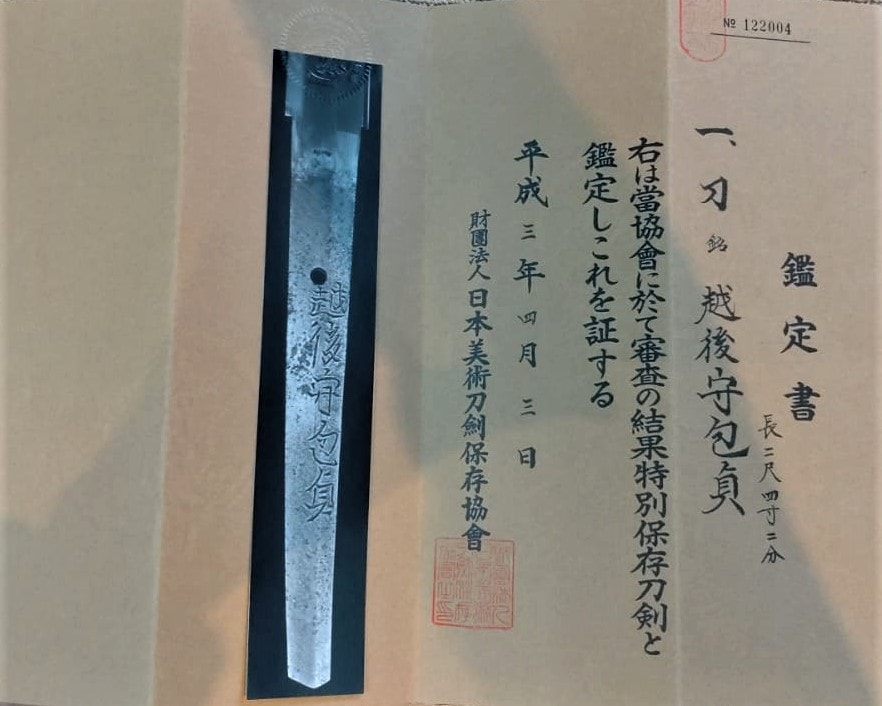 № 122004
鑑定書
一、刀 銘 越後守包貞
長二尺四寸二分
右は當協會に於て審査の結果特別保存刀剣と
鑑定しこれを証する
平成三年四月三日
財團法人日本美術刀劍保存協會
越後守包貞